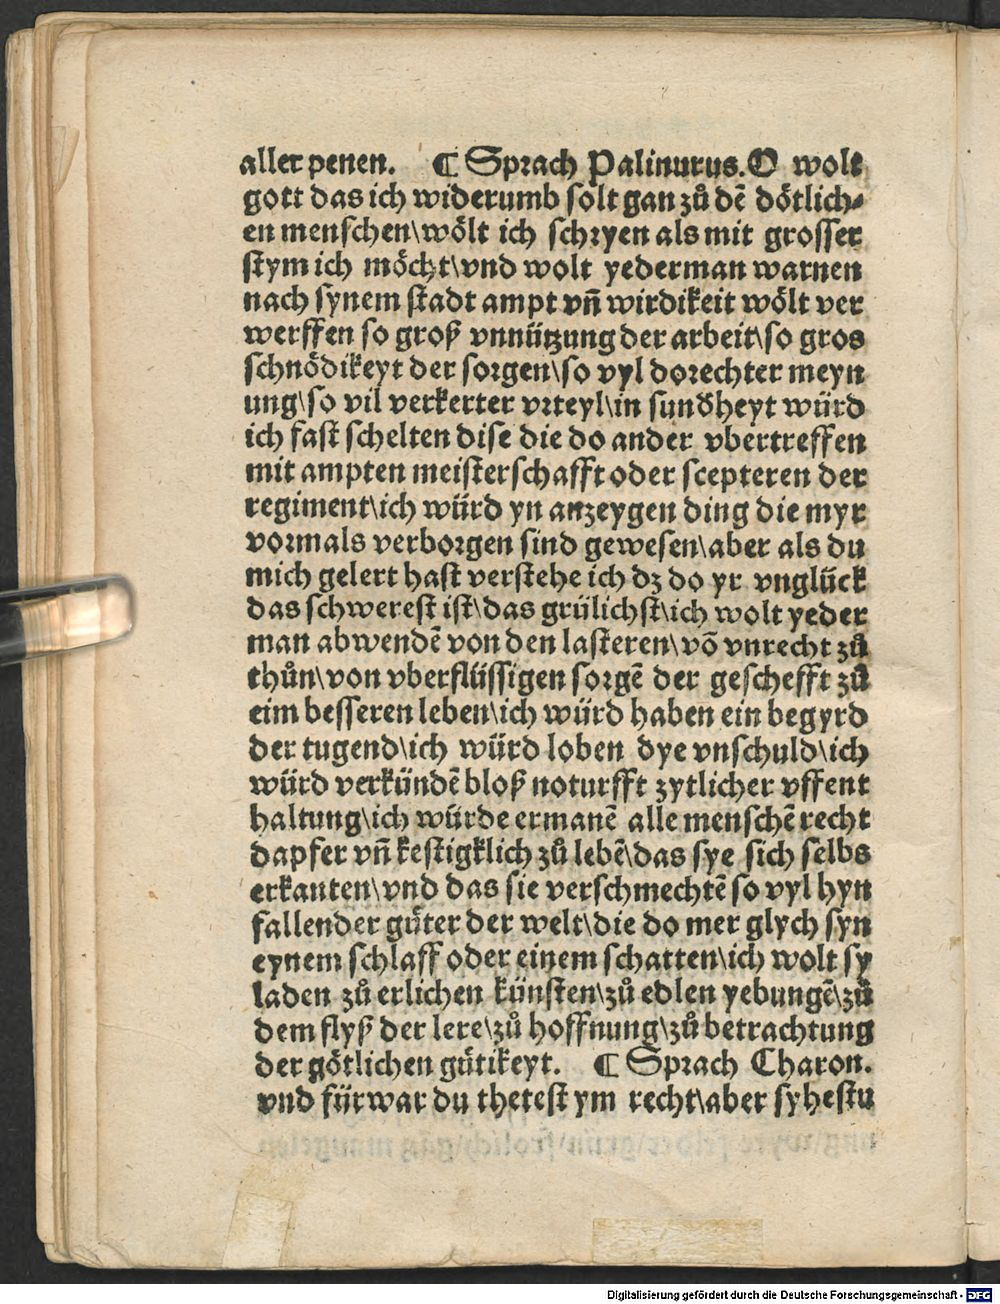 aller penen. ¶ Sprach Palinurus. O wolt
gott das ich widerumb solt gan zů dē dötlich⸗
en menschen\wölt ich schryen als mit grosser
stym ich möcht\vnd wolt yederman warnen
nach synem stadt ampt vn̄ wirdikeit wölt ver
werffen so groß vnnützung der arbeit\so gros
schnödikeyt der sorgen\so vyl dorechter meyn
ung\so vil verkerter vrteyl\in sundheyt würd
ich fast schelten dise die do ander vbertreffen
mit ampten meisterschafft oder scepteren der
regiment\ich würd yn anzeygen ding die myr
vormals verborgen sind gewesen\aber als du
mich gelert hast verstehe ich dz do yr vnglück
das schwerest ist\das grülichst\ich wolt yeder
man abwendē von den lasteren\vō vnrecht zů
thůn\von vberflüssigen sorgē der geschefft zů
eim besseren leben\ich würd haben ein begyrd
der tugend\ich würd loben dye vnschuld\ich
würd verkündē bloß noturfft zytlicher vffent
haltung\ich würde ermanē alle menschē recht
dapfer vn̄ kestigklich zů lebē\das sye sich selbs
erkanten\vnd das sie verschmechtē so vyl hyn
fallender güter der welt\die do mer glych syn
eynem schlaff oder einem schatten\ich wolt sy
laden zů erlichen künsten\zů edlen yebungē\zů
dem flyß der lere\zů hoffnung\zů betrachtung
der götlichen gütikeyt. ¶ Sprach Charon.
vnd fürwar du thetest ym recht\aber syhestu
Digitalisierung gefördert durch die Deutsche Forschungsgemeinschaft - DFG